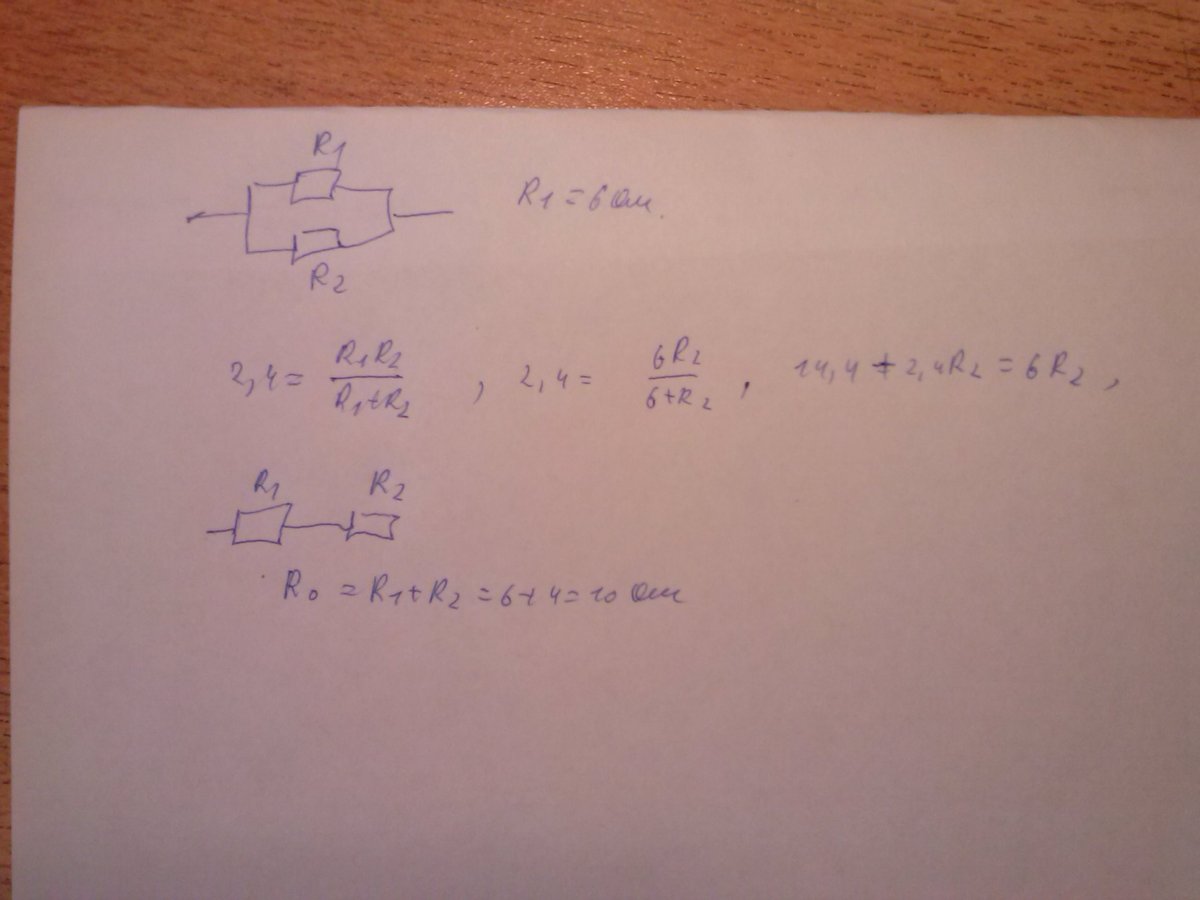 R1
R1 = 6 Ом.
R2
2,4 = R1R2 / R1+R2 , 2,4 = 6R2 / 6+R2 , 14,4 + 2,4R2 = 6R2 ,
R1 R2
R0 = R1+R2 = 6+4 = 10 Ом